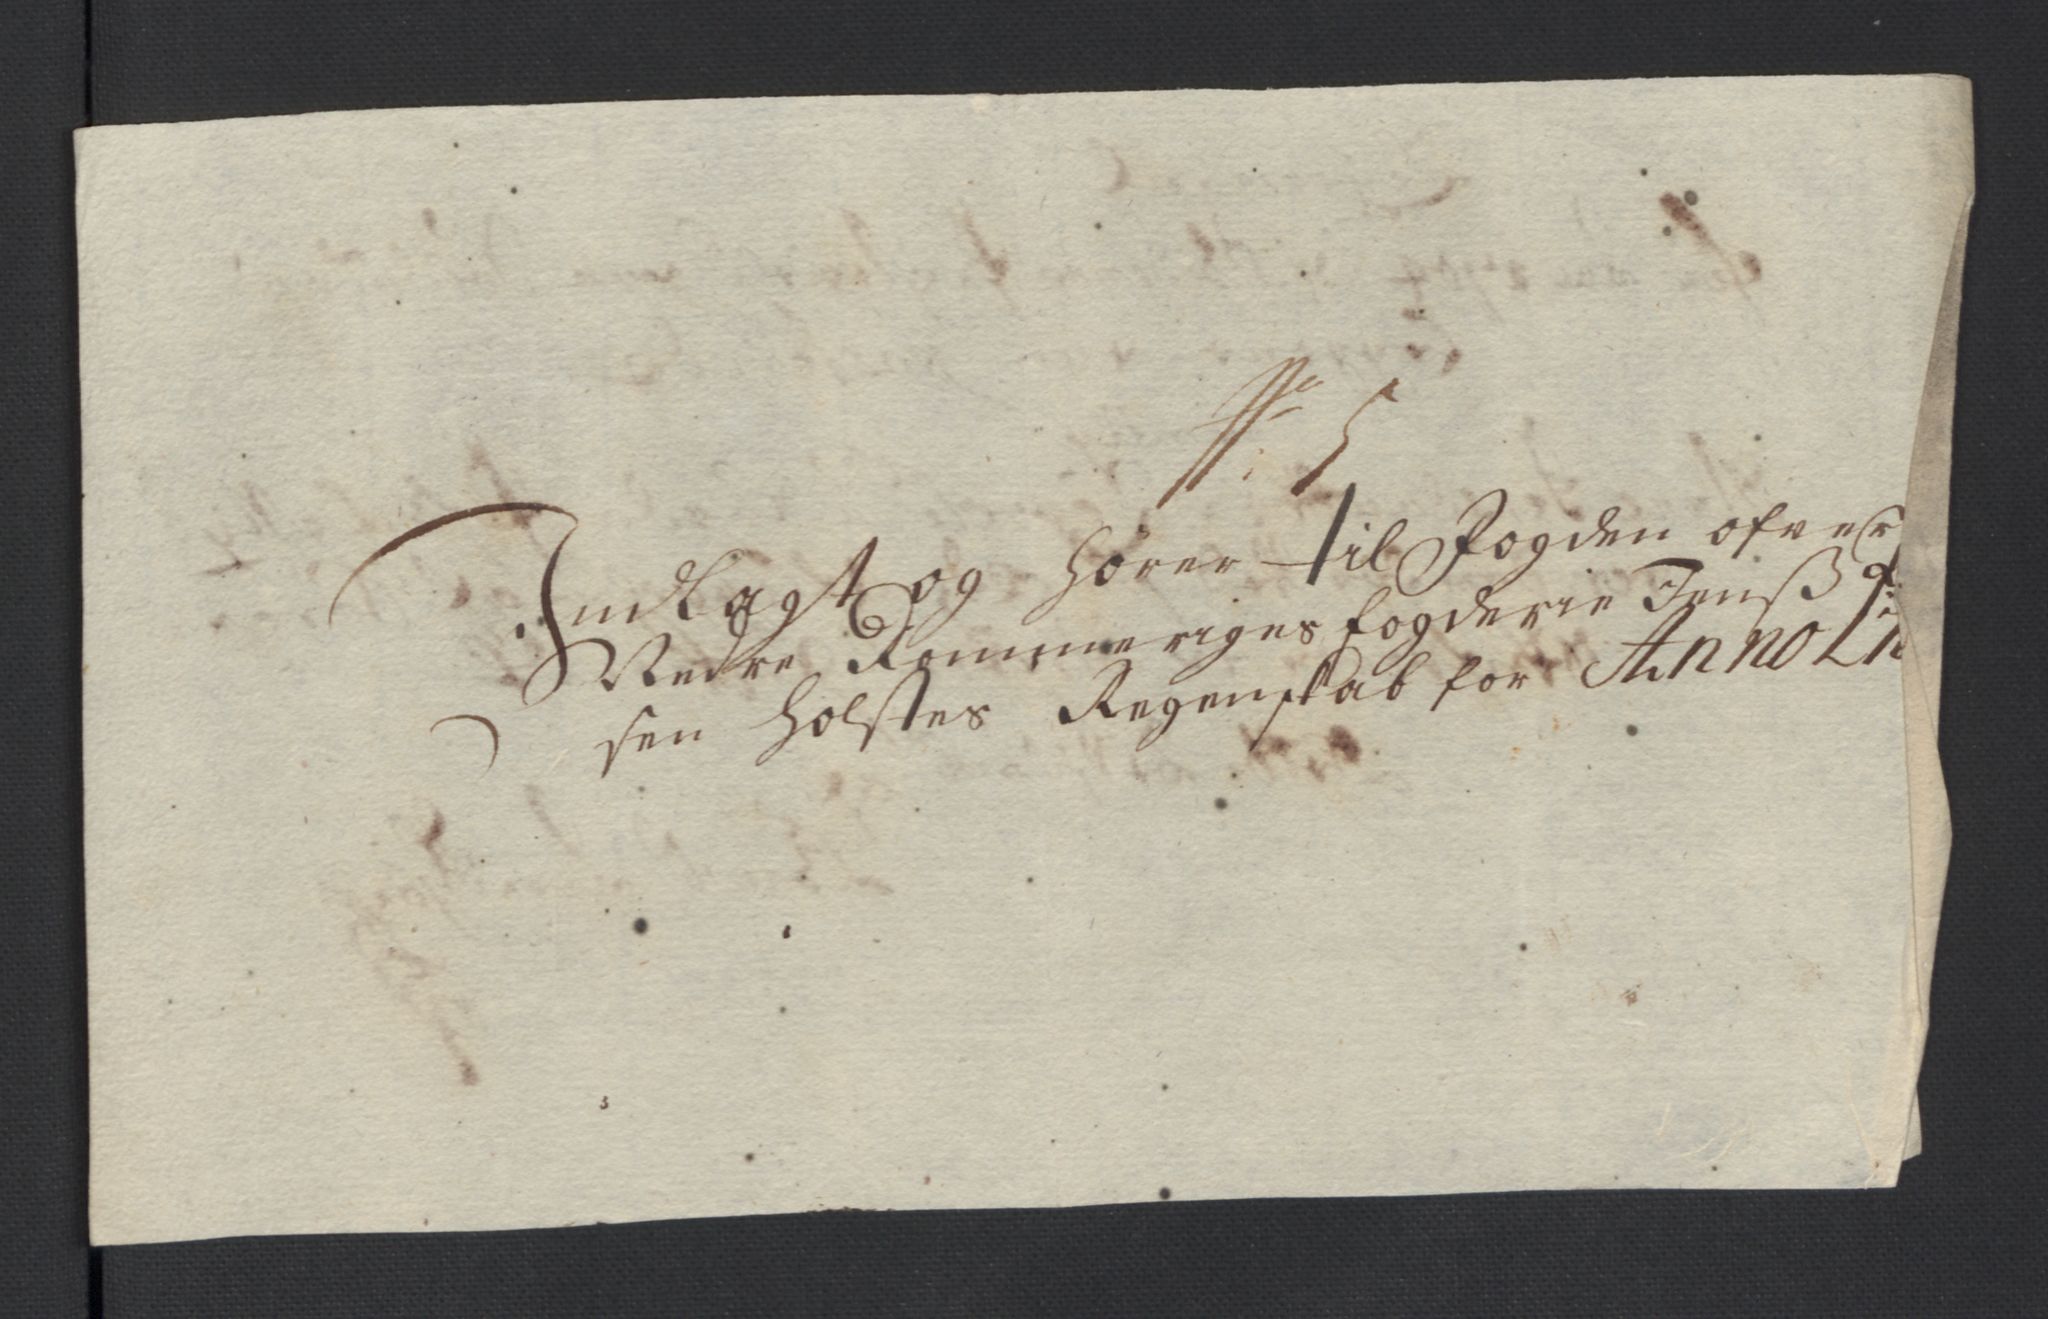 №: 5
Indlagt og hörer til Fogden ofver
Nedre Rommeriges fogderie Jenß
sen Holstes Regenskab for Anno